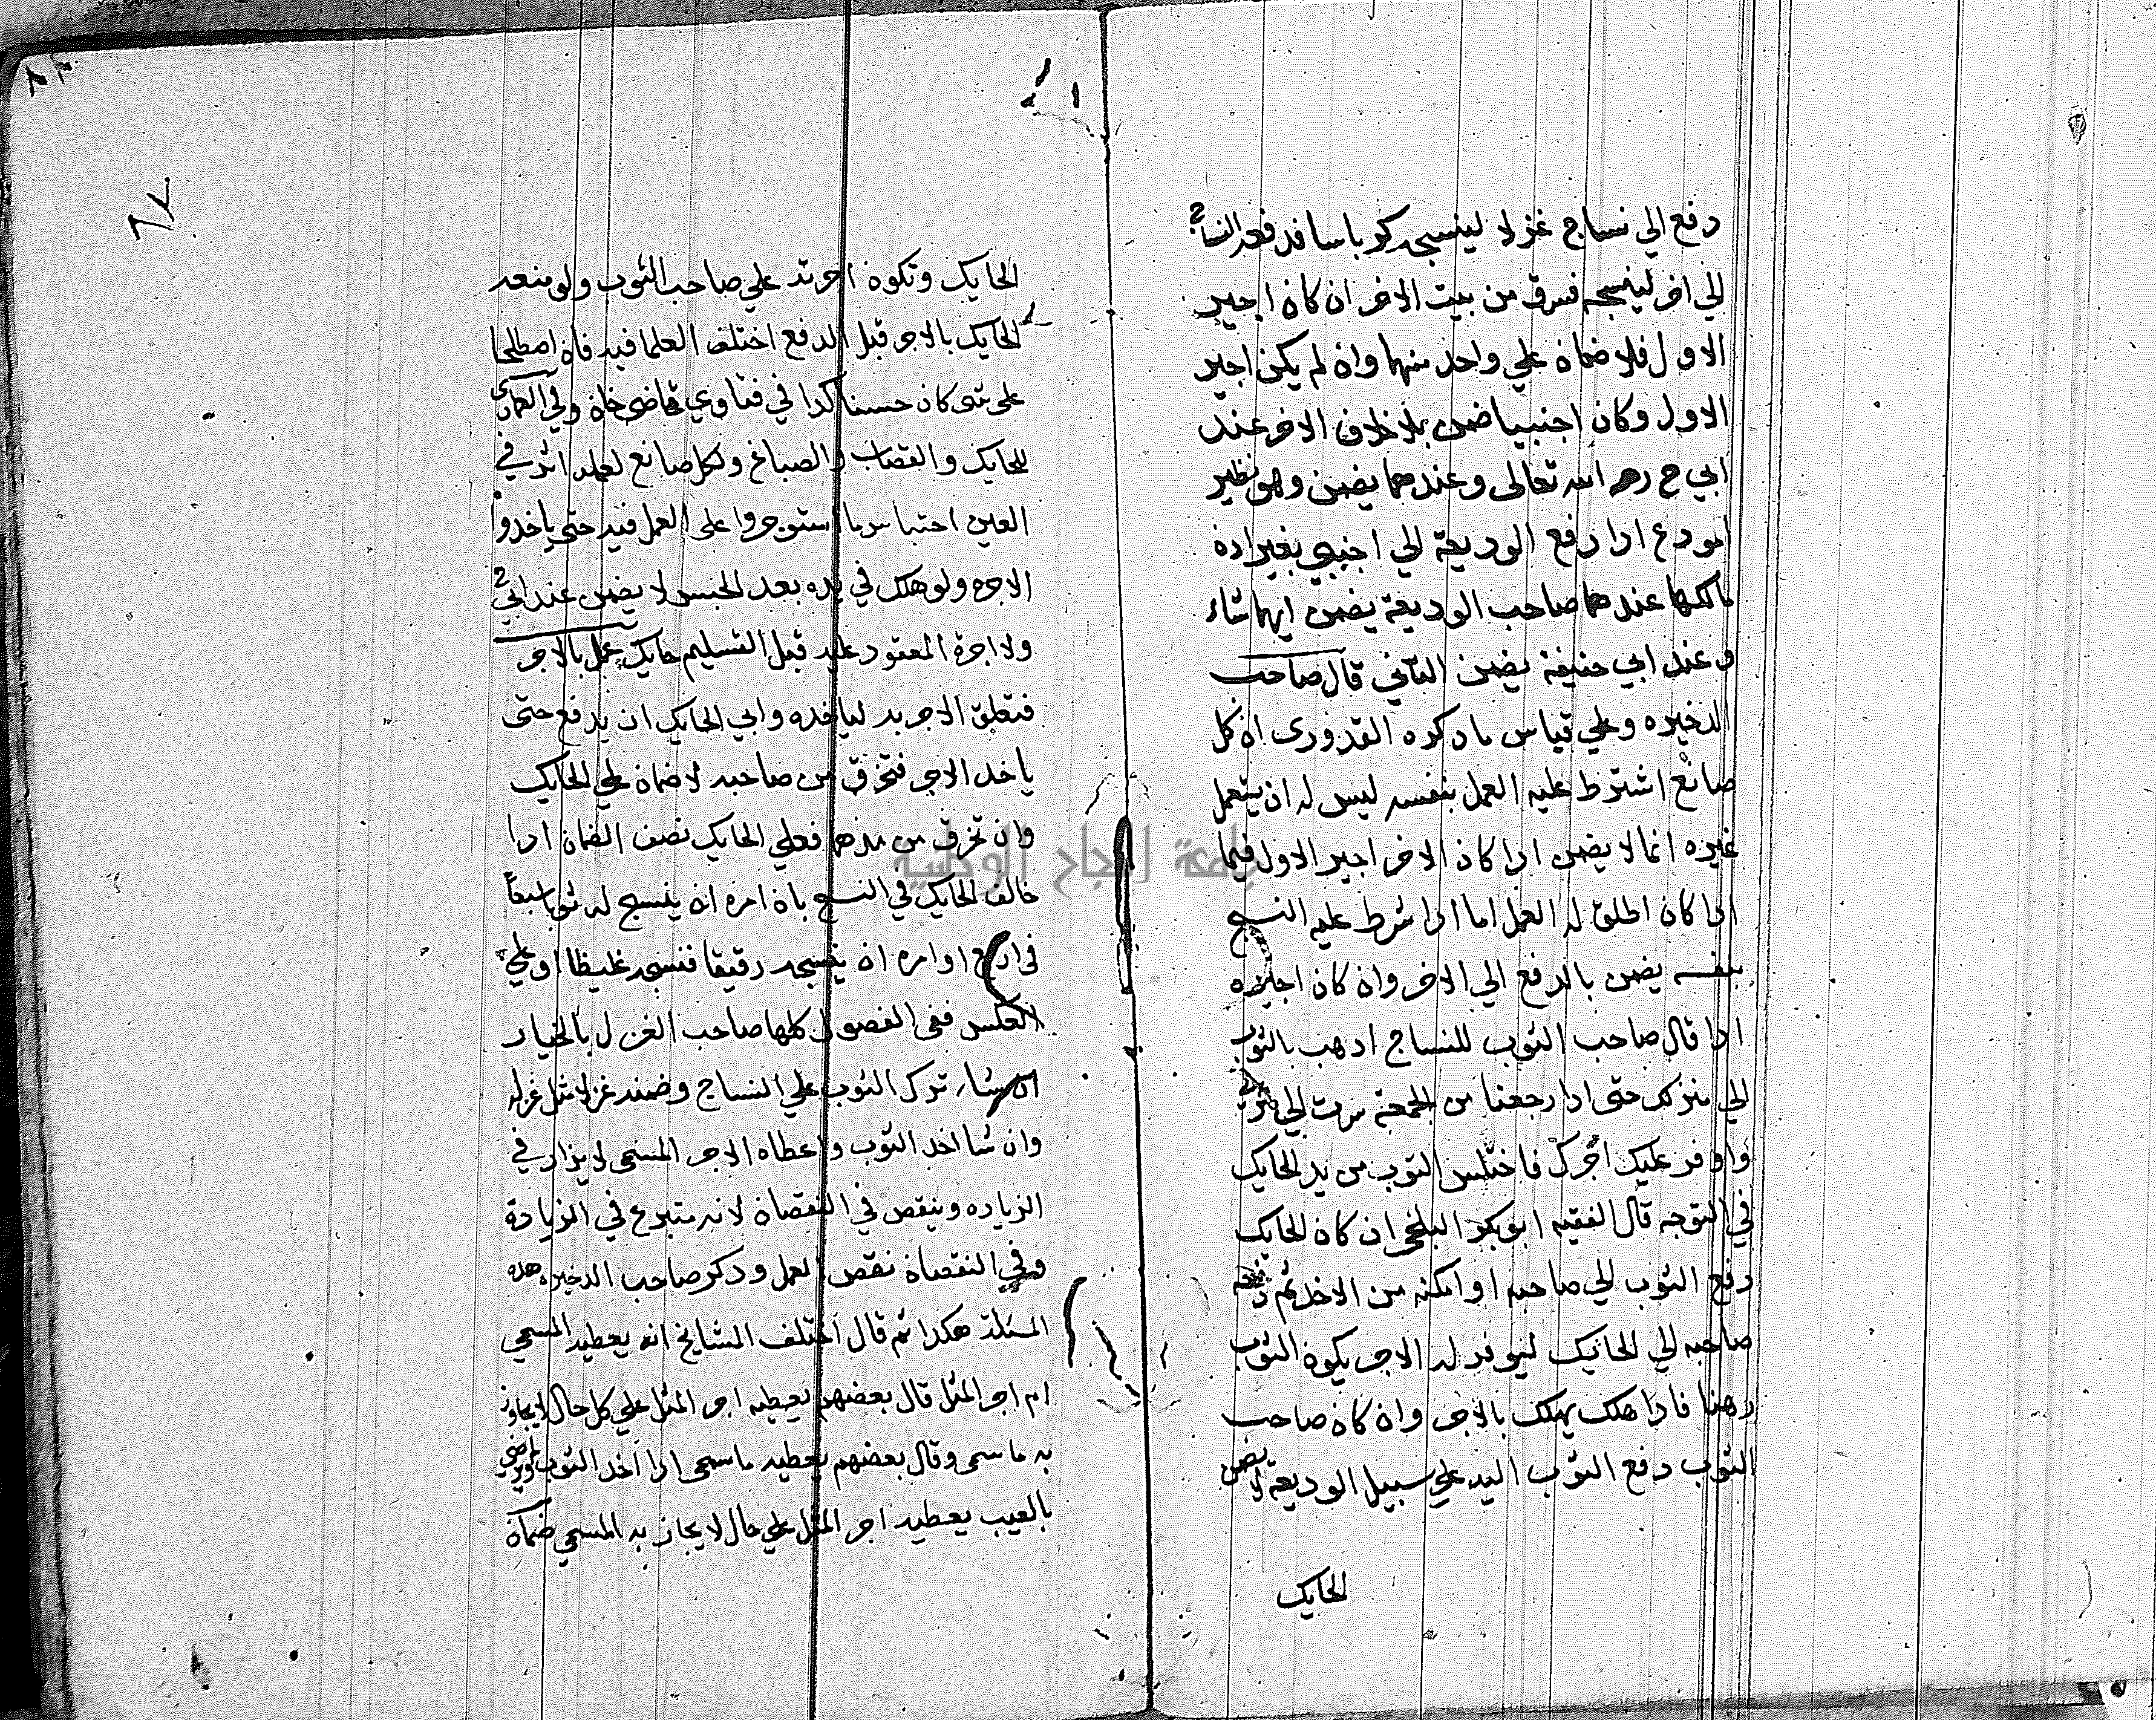 دفع الي نساج غزلا لينسجه كرباسا فدفعه النساج
الي اخر لينسجه فسرق من بيت الاخر ان كان اجير
الاول فلا ضمان علي واحد منهما وان لم يكن اجير
الاول وكان اجنبيا ضمن بلا خلاف الاخر عند
ابي ح رحمه الله تعالى وعندهما يضمن وهو نظير
المودع ادا دفع الوديعة الي اجنبي بغير اذن
مالكها عندهما صاحب الوديعة يضمن ايهما شاء
وعند ابي حنيفة يضمن الثاني قال صاحب
الدخيره وعلي قياس ما دكره القدوري ان كل
صانع اشترط عليه العمل بنفسه ليس له ان يستعمل
غيره انما لا يضمن ادا كان الاخر اجير الاول فيما
ادا كان اطلق له العمل اما ادا شرط عليه النسج
بنفسه يضمن بالدفع الي الاخر وان كان اجيره
ادا قال صاحب الثوب للنساج ادهب بالثوب
الي منزلك حتى ادا رجعنا من الجمعة سرت الي
واوفر عليك اجرك فاختلس الثوب من يد الحايك
في التوجه قال الفقيه ابو بكر البلخي ان كان الحايك
دفع الثوب الي صاحبه او امكنه من الاخد ثم دفعه
صاحبه الي الحايك ليوفر له الاجر يكون الثوب
رهنا فادا هلك يهلك بالاجر وان كان صاحب
الثوب دفع الثوب اليه علي سبيل الوديعة لا يضمن
الحايك
٦٧
الحايك وتكون اجرته علي صاحب الثوب ولو منعه
الحايك بالاجر قبل الدفع اختلف العلما فيه فان اصطلحا
على شي كان حسنا كدا في فتاوي قاضي خان وفي العمادي
للحايك والقصاب والصباغ ولكل صانع لعمله اثر في
العين احتباس ما استوجروا على العمل فيه حتى ياخدوا
الاجره ولو هلك في يده بعد الحبس لا يضمن عند ابي ح
ولا اجرة المعقود عليه قبل التسليم حايك عمل بالاجر
فتعلق الاجر به لياخذه وابي الحايك ان يدفع حتى
ياخد الاجر فتخرق من صاحبه لا ضمان علي الحايك
وان تخرق من مدهما فعلي الحايك نصف الضمان ادا
خالف الحايك في النسج بان امره ان ينسج له ثوبا سبعا
في اربع او امره ان ينسجه رقيقا فنسجه غليظا او علي
العكس ففي الفصول كلها صاحب الغزل بالخيار
ان شاء ترك الثوب علي النساج وضمنه غزلا مثل غزله
وان شا اخد الثوب واعطاه الاجر المسمى لا يزاد في
الزياده وينقص في النقصان لانه متبرع في الزيادة
وفي النقصان نقص العمل ودكر صاحب الدخيره هده
المسئلة هكدا ثم قال اختلف المشايخ انه يعطيه المسمي
ام اجر المثل قال بعضهم يعطيه اجر المثل علي كل حال لا يجاوز
به ما سمى وقال بعضهم يعطيه ما سمى ادا اخد الثوب ورضي
بالعيب يعطيه اجر المثل علي حال لا يجاز به المسمي ضمان
جامعة النجاح الوطنية